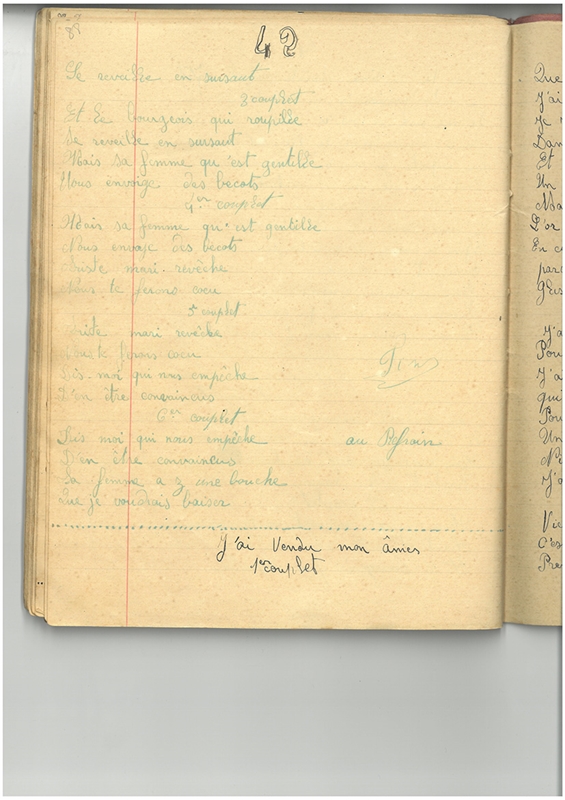 42
Se reveille en sursaut
3 couplet
Et le bourgeois qui roupille
Se reveille en sursaut
Mais sa femme qu'est gentille
Nous envoige des becots
4er couplet
Mais sa femme qu'est gentille
Nous envoie des becots
triste mari revêche
Nous te ferons cocu
5e couplet
triste mari revêche
Nous te ferons cocu
Dis-moi qui nous empêche
D'en être convaincus
6er couplet
Dis moi qui nous empêche
au Refrain
D'en être convaincus
Ta femme a z une bouche
Que je voudrais baiser
J'ai Vendu mon âmes
1er couplet
Que
J'ai
Je
Dan
Et
Un
Ma
L'or
En c
par
J'a
Pou
J'a
qui
Pou
Un
J'a
Vie
C'es
Pre